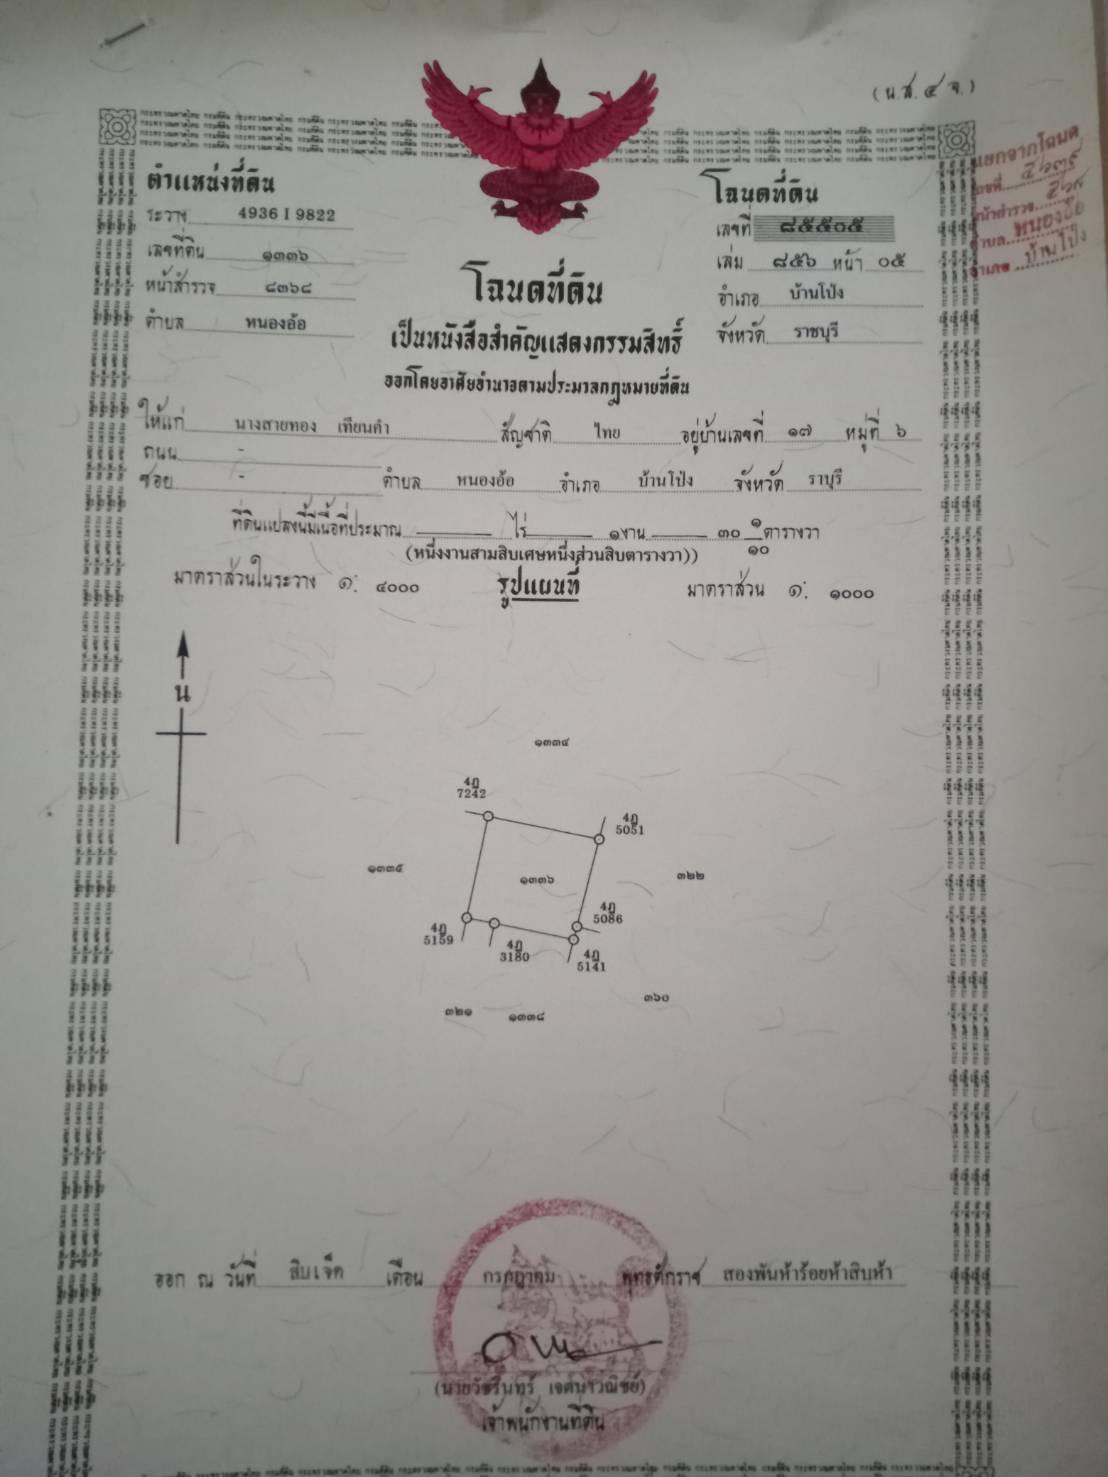 (น.ส.๔ จ.)
แยกจากโฉนด
เลขที่
หน้าสำรวจ
ตำบล หนองอ้อ
อำเภอ บ้านโป่ง
ตำแหน่งที่ดิน
ระวาง 4936 I 9822
เลขที่ดิน ๑๓๓๖
หน้าสำรวจ ๘๓๖๘
ตำบล หนองอ้อ
โฉนดที่ดิน
เลขที่ ๘๕๕๐๕
เล่ม ๘๕๖ หน้า ๐๕
อำเภอ บ้านโป่ง
จังหวัด ราชบุรี
โฉนดที่ดิน
เป็นหนังสือสำคัญแสดงกรรมสิทธิ์
ออกโดยอาศัยอำนาจตามประมวลกฎหมายที่ดิน
ให้แก่ นางสายทอง เทียนคำ สัญชาติ ไทย อยู่บ้านเลขที่ ๑๗ หมู่ที่ ๖
ถนน -
ซอย - ตำบล หนองอ้อ อำเภอ บ้านโป่ง จังหวัด ราบุรี
ที่ดินแปลงนี้มีเนื้อที่ประมาณ ไร่ ๑งาน ๓๐ ๑/๑๐ ตารางวา
(หนึ่งงานสามสิบเศษหนึ่งส่วนสิบตารางวา))
มาตราส่วนในระวาง ๑: ๔๐๐๐ รูปแผนที่ มาตราส่วน ๑: ๑๐๐๐
น
๑๓๓๔
4ฎ
7242
4ฎ
5051
๑๓๓๕
๑๓๓๖
๓๒๒
4ฎ
5086
4ฎ
5159
4ฎ
3180
4ฎ
5141
๓๖๐
๓๒๑
๑๓๓๘
ออก ณ วันที่ สิบเจ็ด เดือน กรกฎาคม พุทธศักราช สองพันห้าร้อยห้าสิบห้า
(นายวัชรินทร์ เจตนาวณิชย์)
เจ้าพนักงานที่ดิน